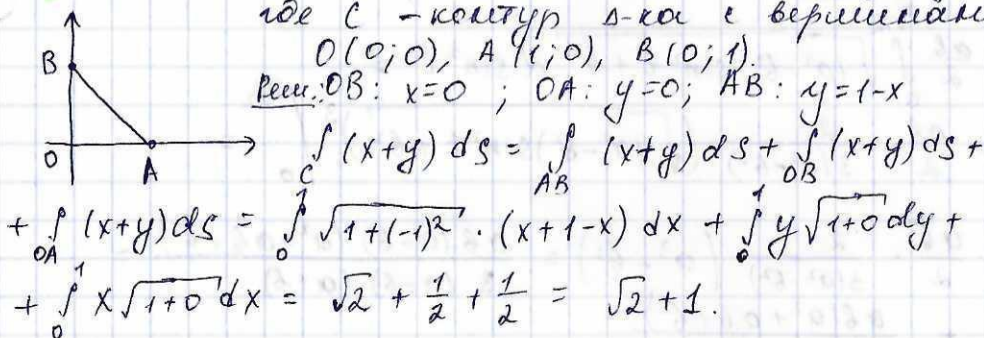 где C - контур Δ-ка с вершинам
O(0;0), A (1;0), B(0;1).
Реш.: OB: x=0 ; OA: y=0; AB: y=1-x
B
O
A
∫_C (x+y) ds = ∫_AB (x+y) ds + ∫_OB (x+y) ds +
+ ∫_OA (x+y) ds = ∫_0^1 √(1+(-1)²) · (x+1-x) dx + ∫_0^1 y√(1+0) dy +
+ ∫_0^1 x√(1+0) dx = √2 + 1/2 + 1/2 = √2 + 1.